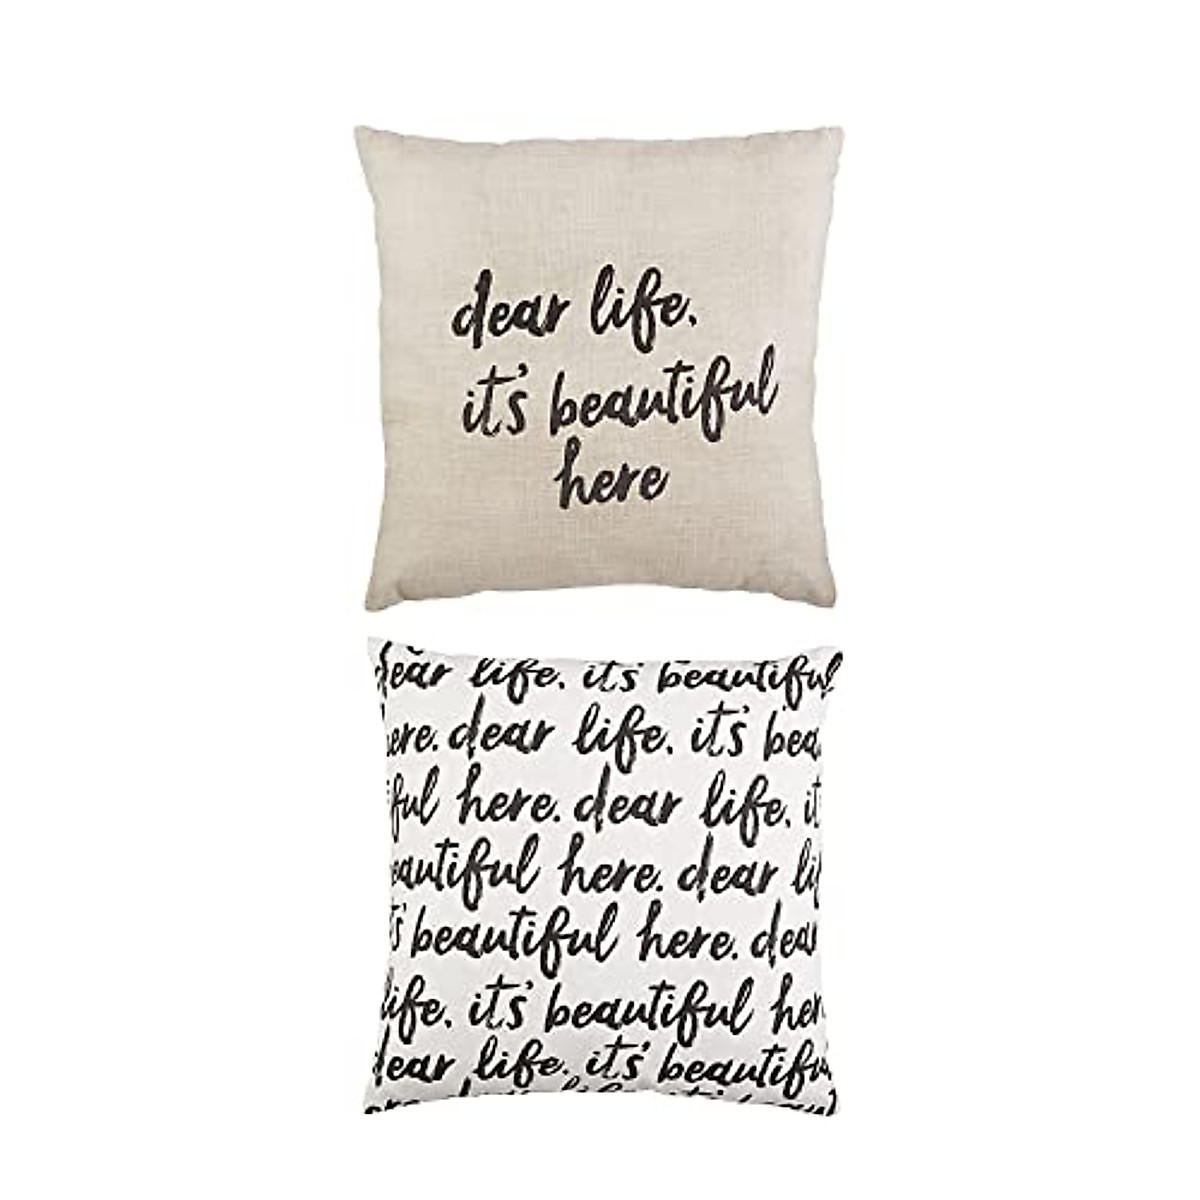 dear life.
it's beautiful
here
dear life. it's beautiful
here. dear life. it's bea
iful here. dear life. it
eautiful here. dear lif
t's beautiful here. dear
life. it's beautiful her
dear life. it's beautiful